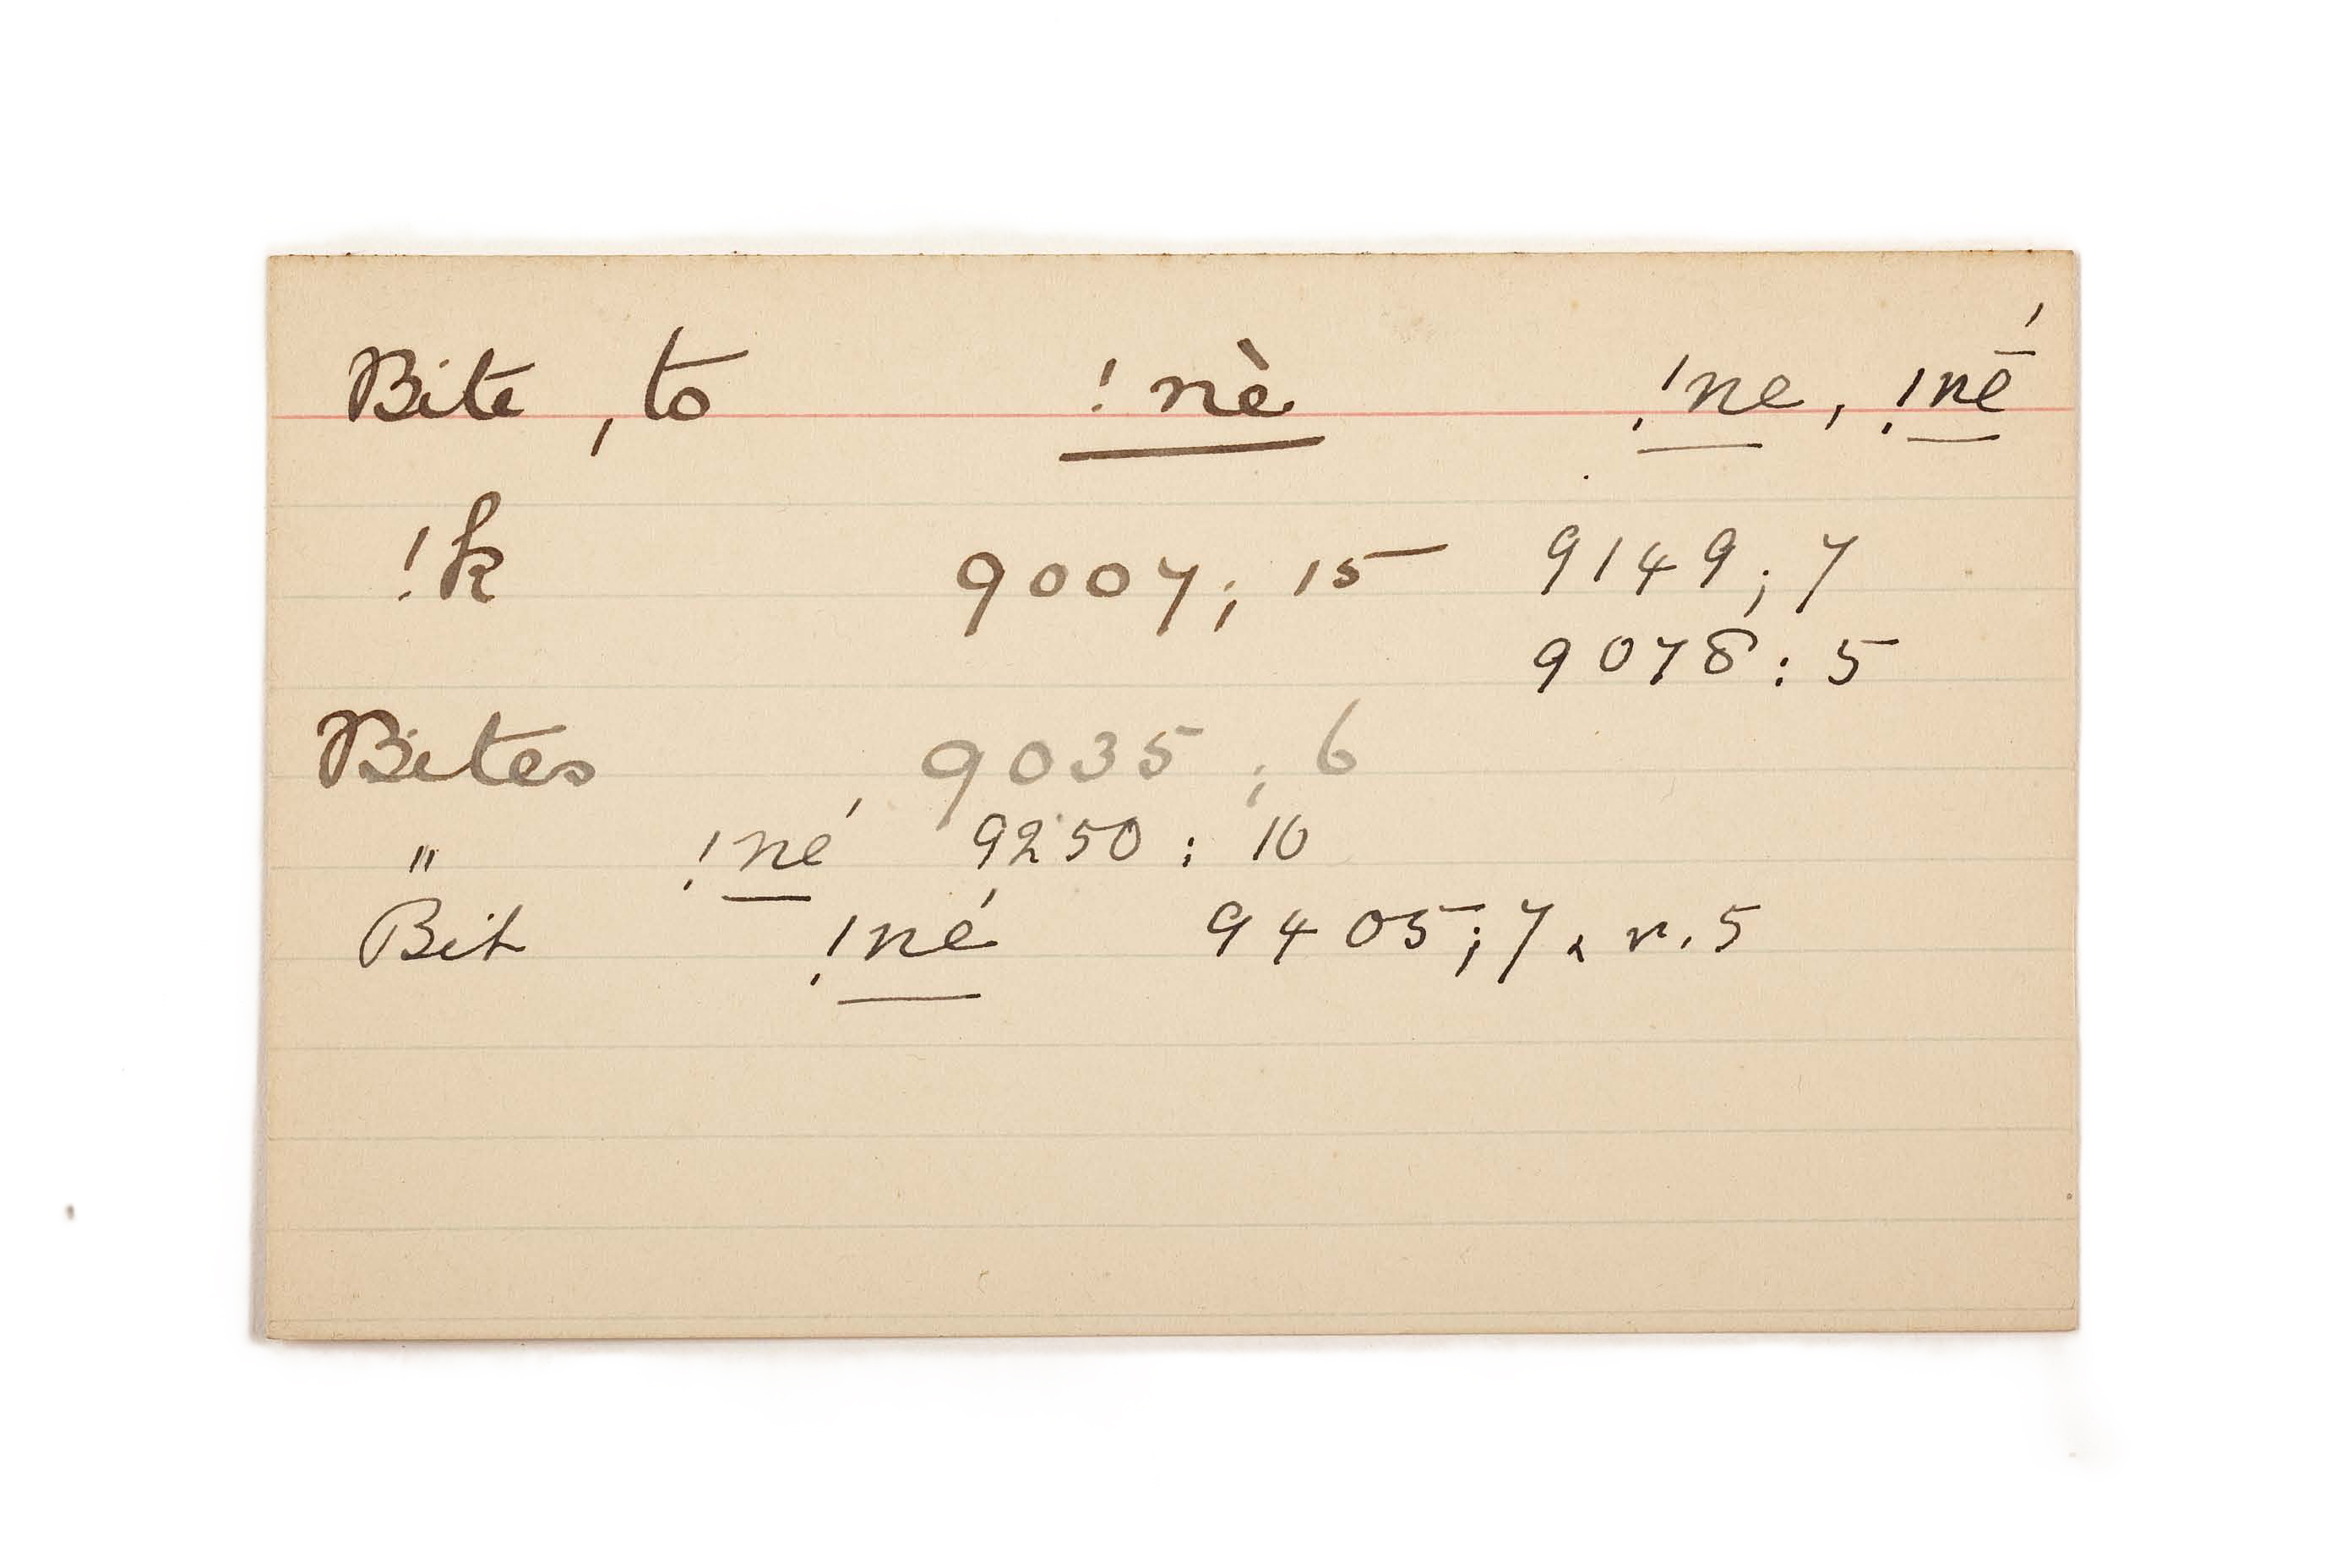 Bite, to !nè !ne, !nḗ
!k 9007; 15 9149; 7
9078: 5
Bites 9035; 6
" !né 9250: 10
Bit !né 9405; 7. r. 5